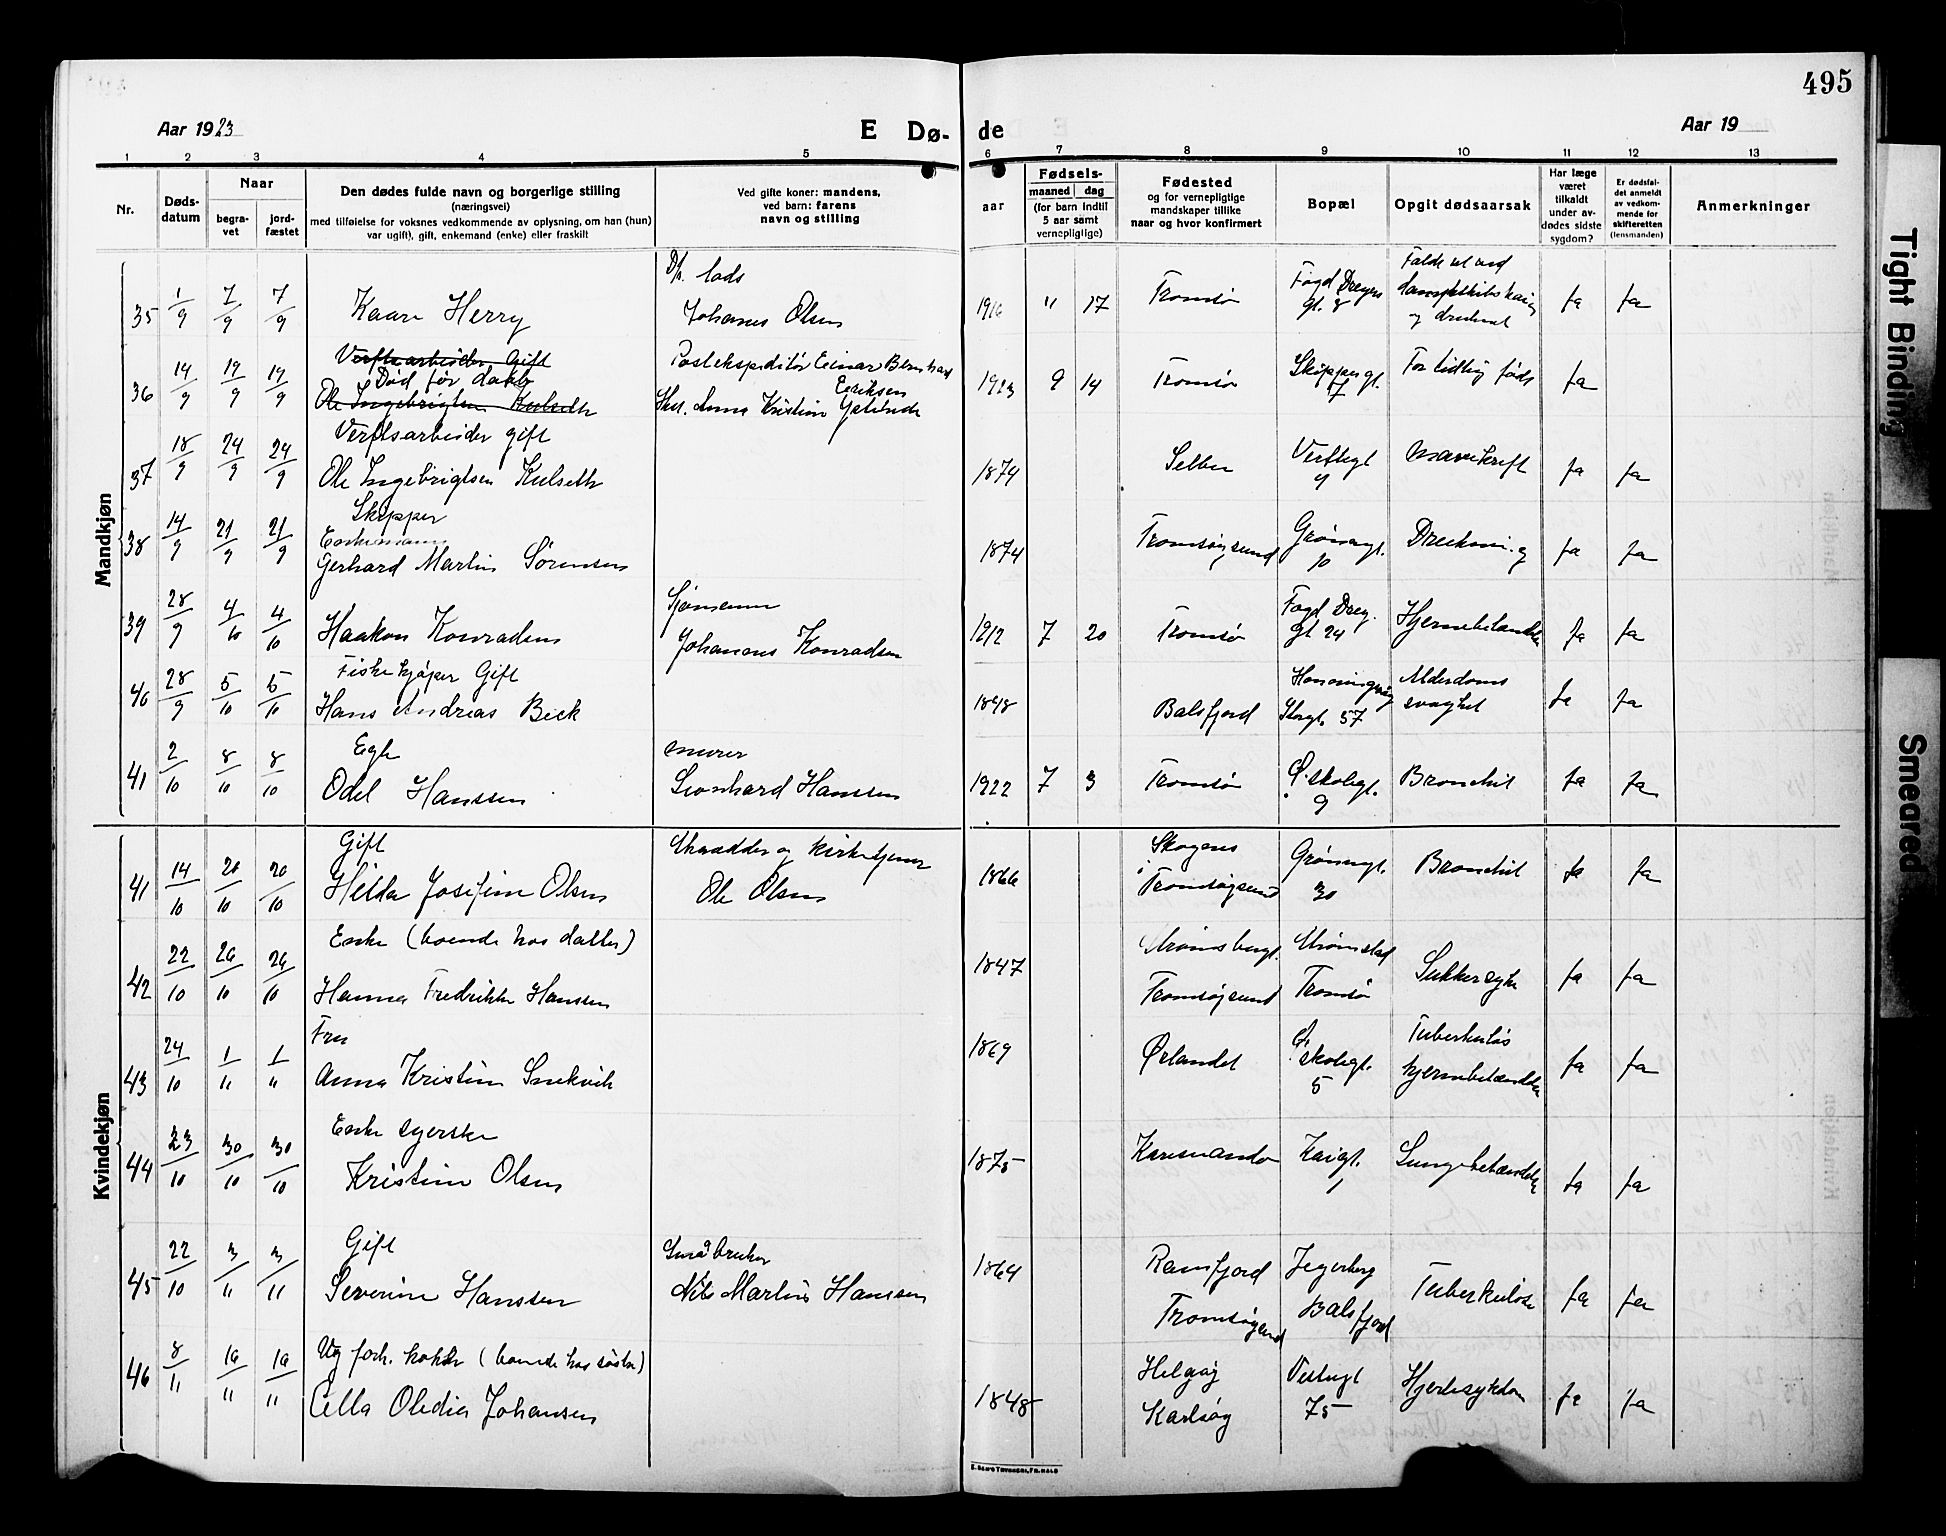 495
Aar 1923
E Dø-
de
Aar 19
1 2 3 4 5 6 7 8 9 10 11 12 13
Nr.
Døds-
datum
Naar
begra-
vet
jord-
fæstet
Den dødes fulde navn og borgerlige stilling
(næringsvei)
med tilføielse for voksnes vedkommende av oplysning, om han (hun)
var ugift), gift, enkemand (enke) eller fraskilt
Ved gifte koner: mandens,
ved barn: farens
navn og stilling
aar
Fødsels-
maaned dag
(for barn indtil
5 aar samt
vernepligtige)
Fødested
og for vernepligtige
mandskaper tillike
naar og hvor konfirmert
Bopæl
Opgit dødsaarsak
Har læge
været
tilkaldt
under av-
dødes sidste
sygdom?
Er dødsfal-
det anmeldt
av vedkom-
mende for
skifteretten
(lensmanden)
Anmerkninger
Mandkjøn
35 1/9 7/9 7/9 Kaare Herry
lods
Johanes Olsen
1916 " 17 Tromsø
Fogd Dreyers
gt. 8
Faldt ut ved
dampskibskaien
og druknet
ja ja
36 14/9 19/9 19/9
Verftsarbeider Gift
Død før daab
Ole Ingebrigtsen Kulseth
Postekspeditør Einar Bernhard
Eriksen
Anna Kristine
1923 9 14 Tromsø
Skippergt.
7
For tidlig født ja
37 18/9 24/9 24/9
Verftsarbeider gift
Ole Ingebrigtsen Kulseth
1874 Selbu
Verftsgt
4
Mavekreft ja ja
38 14/9 21/9 21/9
Skipper
Enkemann
Gerhard Martin Sørensen
1874 Tromsøysund
Grønnegt.
10
Drukning ja ja
39 28/9 4/10 4/10 Haakon Konradsen
Sjømann
Johannes Konradsen
1912 7 20 Tromsø
Fogd Drey.
Gt 24
Hjernebetændelse ja ja
40 28/9 5/10 5/10
Fiskekjøper Gift
Hans Andreas Beck
1848 Balsfjord
Honningsvåg
Storgt. 57
Alderdoms
svaghet
ja ja
41 2/10 8/10 8/10
Egte
Odel Hanssen
murer
Leonhard Hanssen
1922 7 3 Tromsø
Ø. skolegt.
9
Bronchit ja ja
Kvindekjøn
41 14/10 20/10 20/10
Gift
Hilda Josefine Olsen
Skrædder og kirketjener
Ole Olsen
1866
Skogens
i Tromsøysund
Grønnegt.
30
Bronchit ja ja
42 22/10 26/10 26/10
Enke (boende hos datter)
Hanna Fredrikke Hanssen
1847
Tromsøysund
Tromsø
Sukkersyke ja ja
43 24/10 1/11 1/"
Fru
Anna Kristine Snekvik
1869 Ørlandet
Ø. skolegt.
5
Tuberkuløs
hjernebetændelse
ja ja
44 23/10 30/10 30/10
Enke syerske
Kristine Olsen
1875 Karesuando
Kaigt.
1
Lungebetændelse ja ja
45 22/10 3/11 3/11
Gift
Severine Hanssen
Småbruker
Nils Martin Hanssen
1864
Ramfjord
Tromsøysund
Jegerberg
Balsfjord
Tuberkulose ja ja
46 8/11 16/11 16/11
Ug forh. kokke (boende hos søster)
Ella Oledia Johansen
1848
Helgøy
Karlsøy
Vestregt
75
Hjertesykdom ja ja
E. SEM'S TRYKKERI, FR.HALD
Tight Binding
Smeared